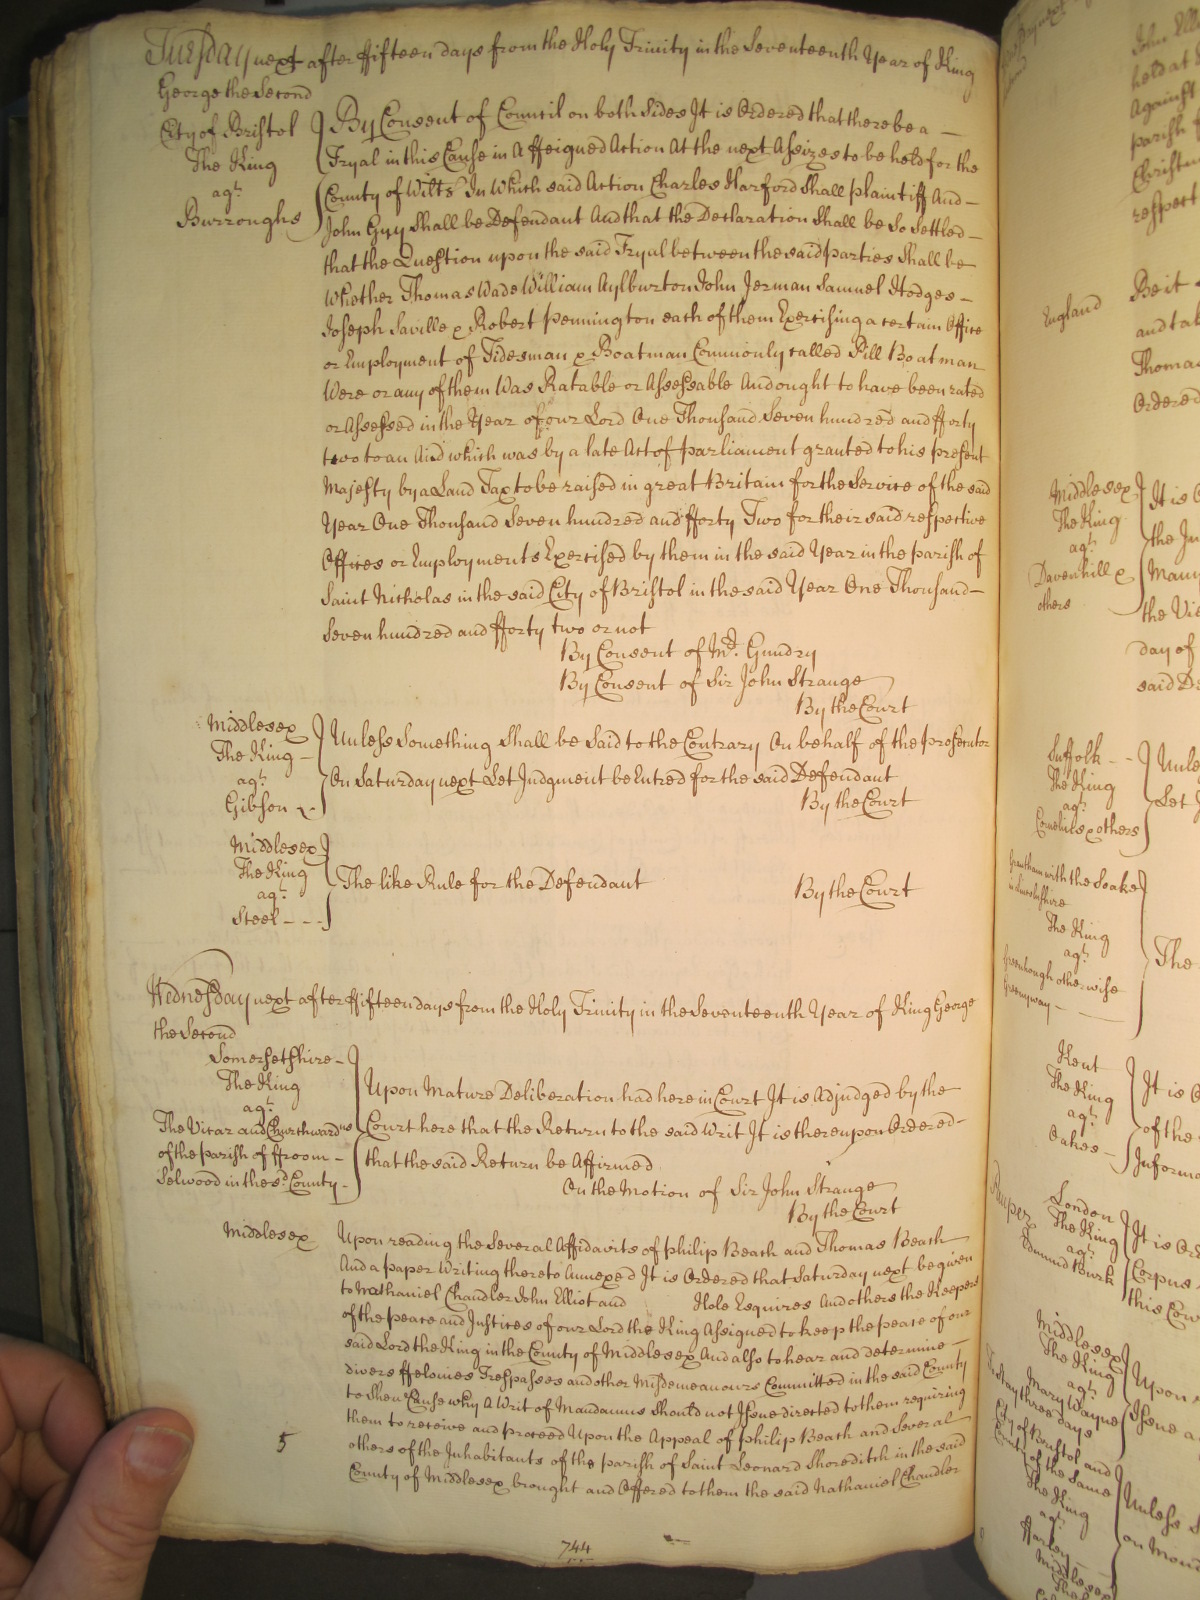 Tuesday next after ffifteen days from the Holy Trinity in the Seventeenth Year of King
George the Second
City of Bristol
The King
agt.
Burroughs
By Consent of Council on both Sides It is Ordered that there be a —
Tryal in this Cause in A ffeigned Action At the next Assizes to be held for the
County of Wilts In Which said Action Charles Harford Shall plaintiff And —
John Gyy Shall be Defendant And that the Declaration Shall be So Settled —
that the Question upon the said Tryal between the said parties Shall be
Whether Thomas Wade William Aylburton John Jerman Samuel Hodges —
Joseph Saville & Robert Pennington each of them Exercising a certain Office
or Employment of Tidesman & Boatman Commonly called Pill Boatman
Were or any of them Was Ratable or Assessable And ought to have been rated
or Assessed in the Year of our Lord One Thousand Seven hundred and fforty
two to an Aid which was by a late Act of parliament granted to his present
Majesty by a Land Tax to be raised in great Britain for the Service of the said
Year One Thousand Seven hundred and fforty Two for their said respective
Offices or Employments Exercised by them in the said Year in the parish of
Saint Nicholas in the said City of Bristol in the said Year One Thousand —
Seven hundred and fforty two or not
By Consent of Mr. Gundry
By Consent of Sir John Strange
By the Court
Middlesex
The King —
agt.
Gibson
Unless Something Shall be Said to the Contrary On behalf of the prosecutor
On Saturday next Let Judgment be Entred for the said Defendant
By the Court
Middlesex
The King
agt.
Steel — — —
The like Rule for the Defendant
By the Court
Wednesday next after ffifteen days from the Holy Trinity in the Seventeenth Year of King George
the Second
Somersetshire —
The King
agt.
The Vicar and Churchwardns
of the parish of ffroom —
Selwood in the sd. County —
Upon Mature Deliberation had here in Court It is Adjudged by the
Court here that the Return to the said Writ It is thereupon Ordered —
that the said Return be Affirmed
On the Motion of Sir John Strange
By the Court
Middlesex
Upon reading the Several Affidavits of philip Beach and Thomas Beach
And a paper Writing thereto Annexed It is Ordered that Saturday next be given
to Nathaniel Chandler John Elliot and Hole Esquires And others the Keepers
of the peace and Justices of our Lord the King Assigned to keep the peace of our
said Lord the King in the County of Middlesex And also to hear and determine —
divers ffelonies Trespasses and other Misdemeanours Committed in the said County
to Shew Cause why A Writ of Mandamus Should not Issue directed to them requiring
them to receive and proceed Upon the Appeal of philip Beach and Several
others of the Inhabitants of the parish of Saint Leonard Shoreditch in the said
County of Middlesex brought and Offered to them the said Nathaniel Chandler
5
744
John
held at
Against
parish
Christ
respect
England
Be it
and
Thomas
Ordered
Middlesex
The King
agt.
Davenhill &
others
It is
the
Mann
the
day of
said
Suffolk — —
The King
agt.
Cornelius & others
Unle
Let
Grantham with the Soake
in Lincolnshire
The King
agt.
Greenhough otherwise
Greenway — —
The
Kent
The King
agt.
Oakes —
It is
of the
Informa
London
The King
agt.
Edmund Burk
It is Or
Corpus
this Cou
Middlesex
The King
agt.
Mary Wayne
Upon
Issue a
three days
City of Bristol and
County of the Same
The King
agt.
Harley —
Unless
on Mon
Middlesex